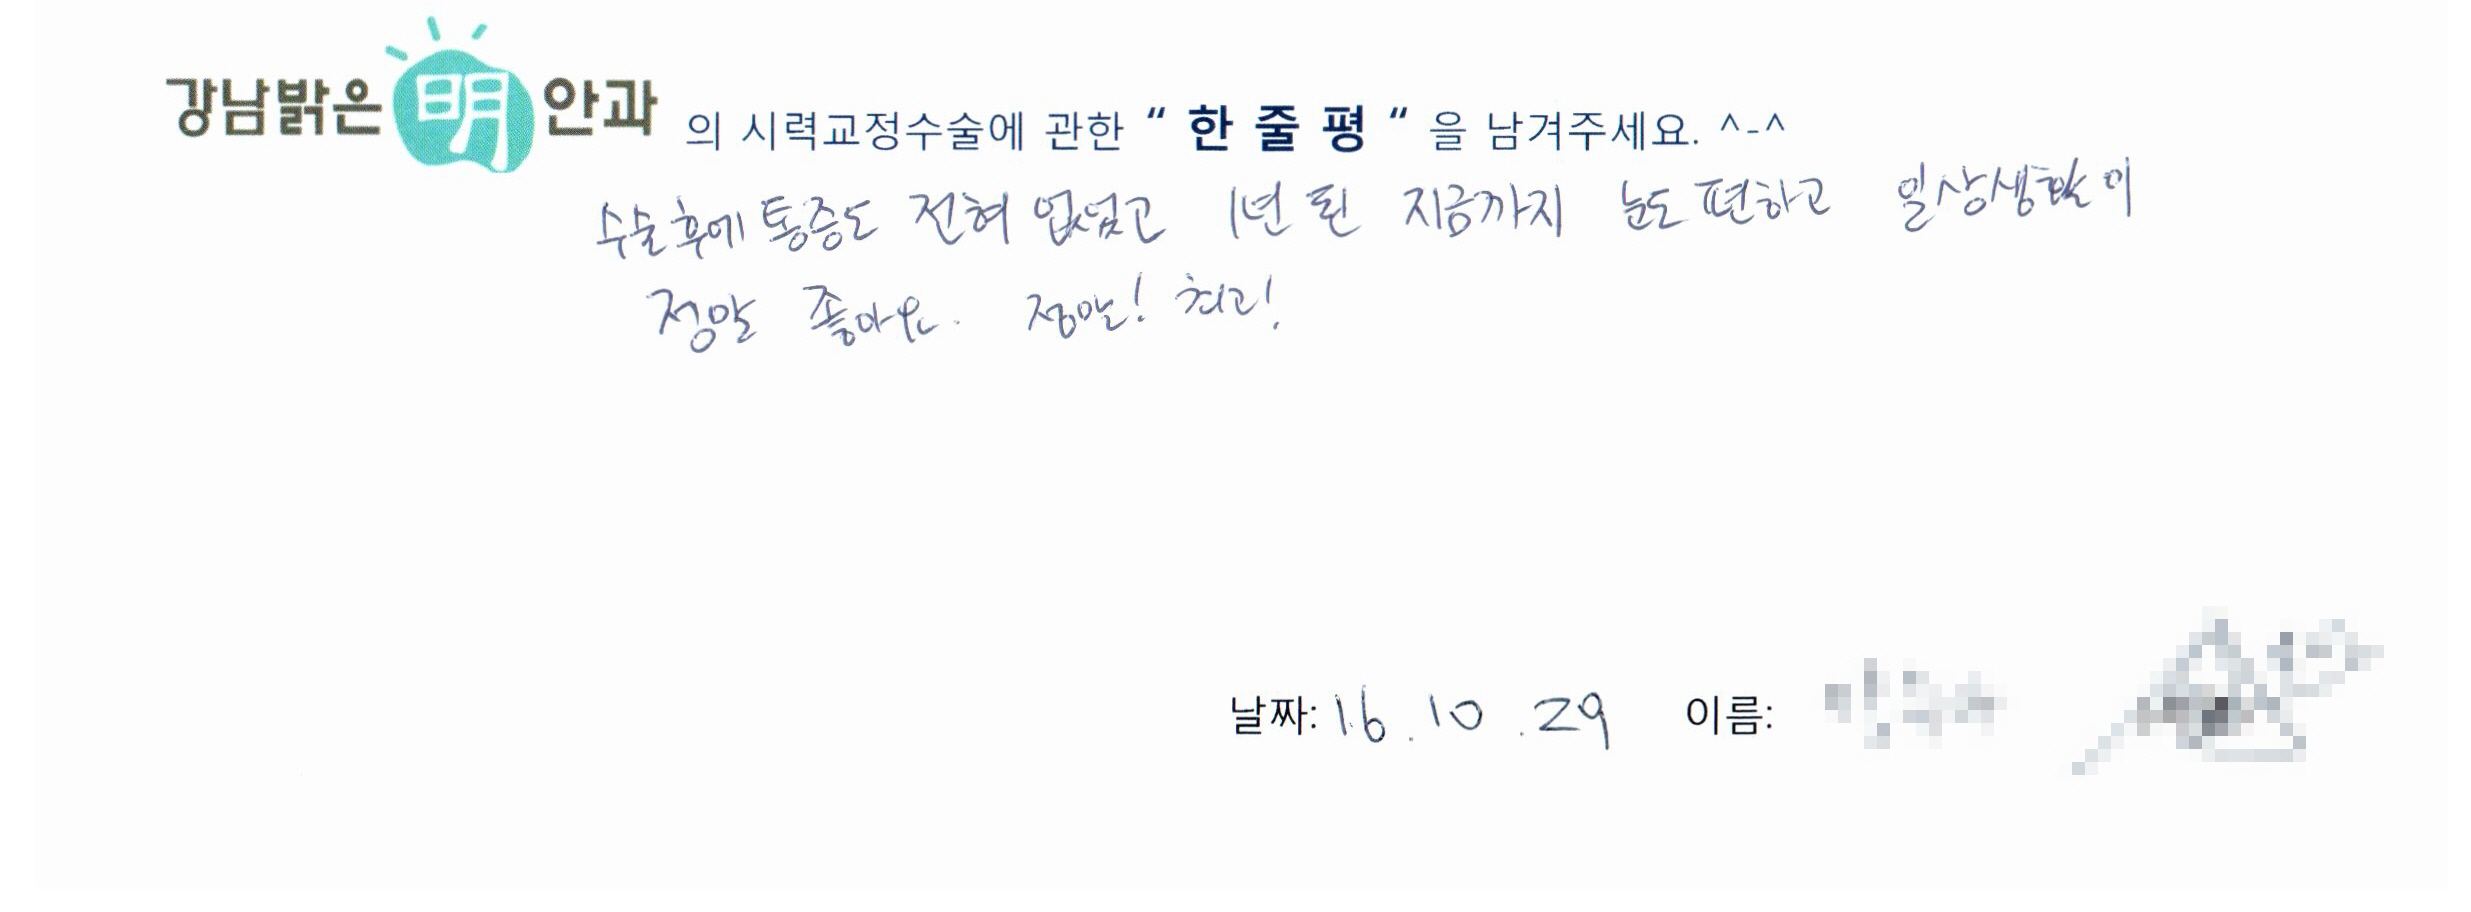 강남밝은 明 안과 의 시력교정수술에 관한 “ 한 줄 평 “ 을 남겨주세요. ^-^
수술후에 통증도 전혀 없었고 1년 된 지금까지 눈도 편하고 일상생활이
정말 좋아요. 정말! 최고!
날짜: 16. 10. 29 이름: